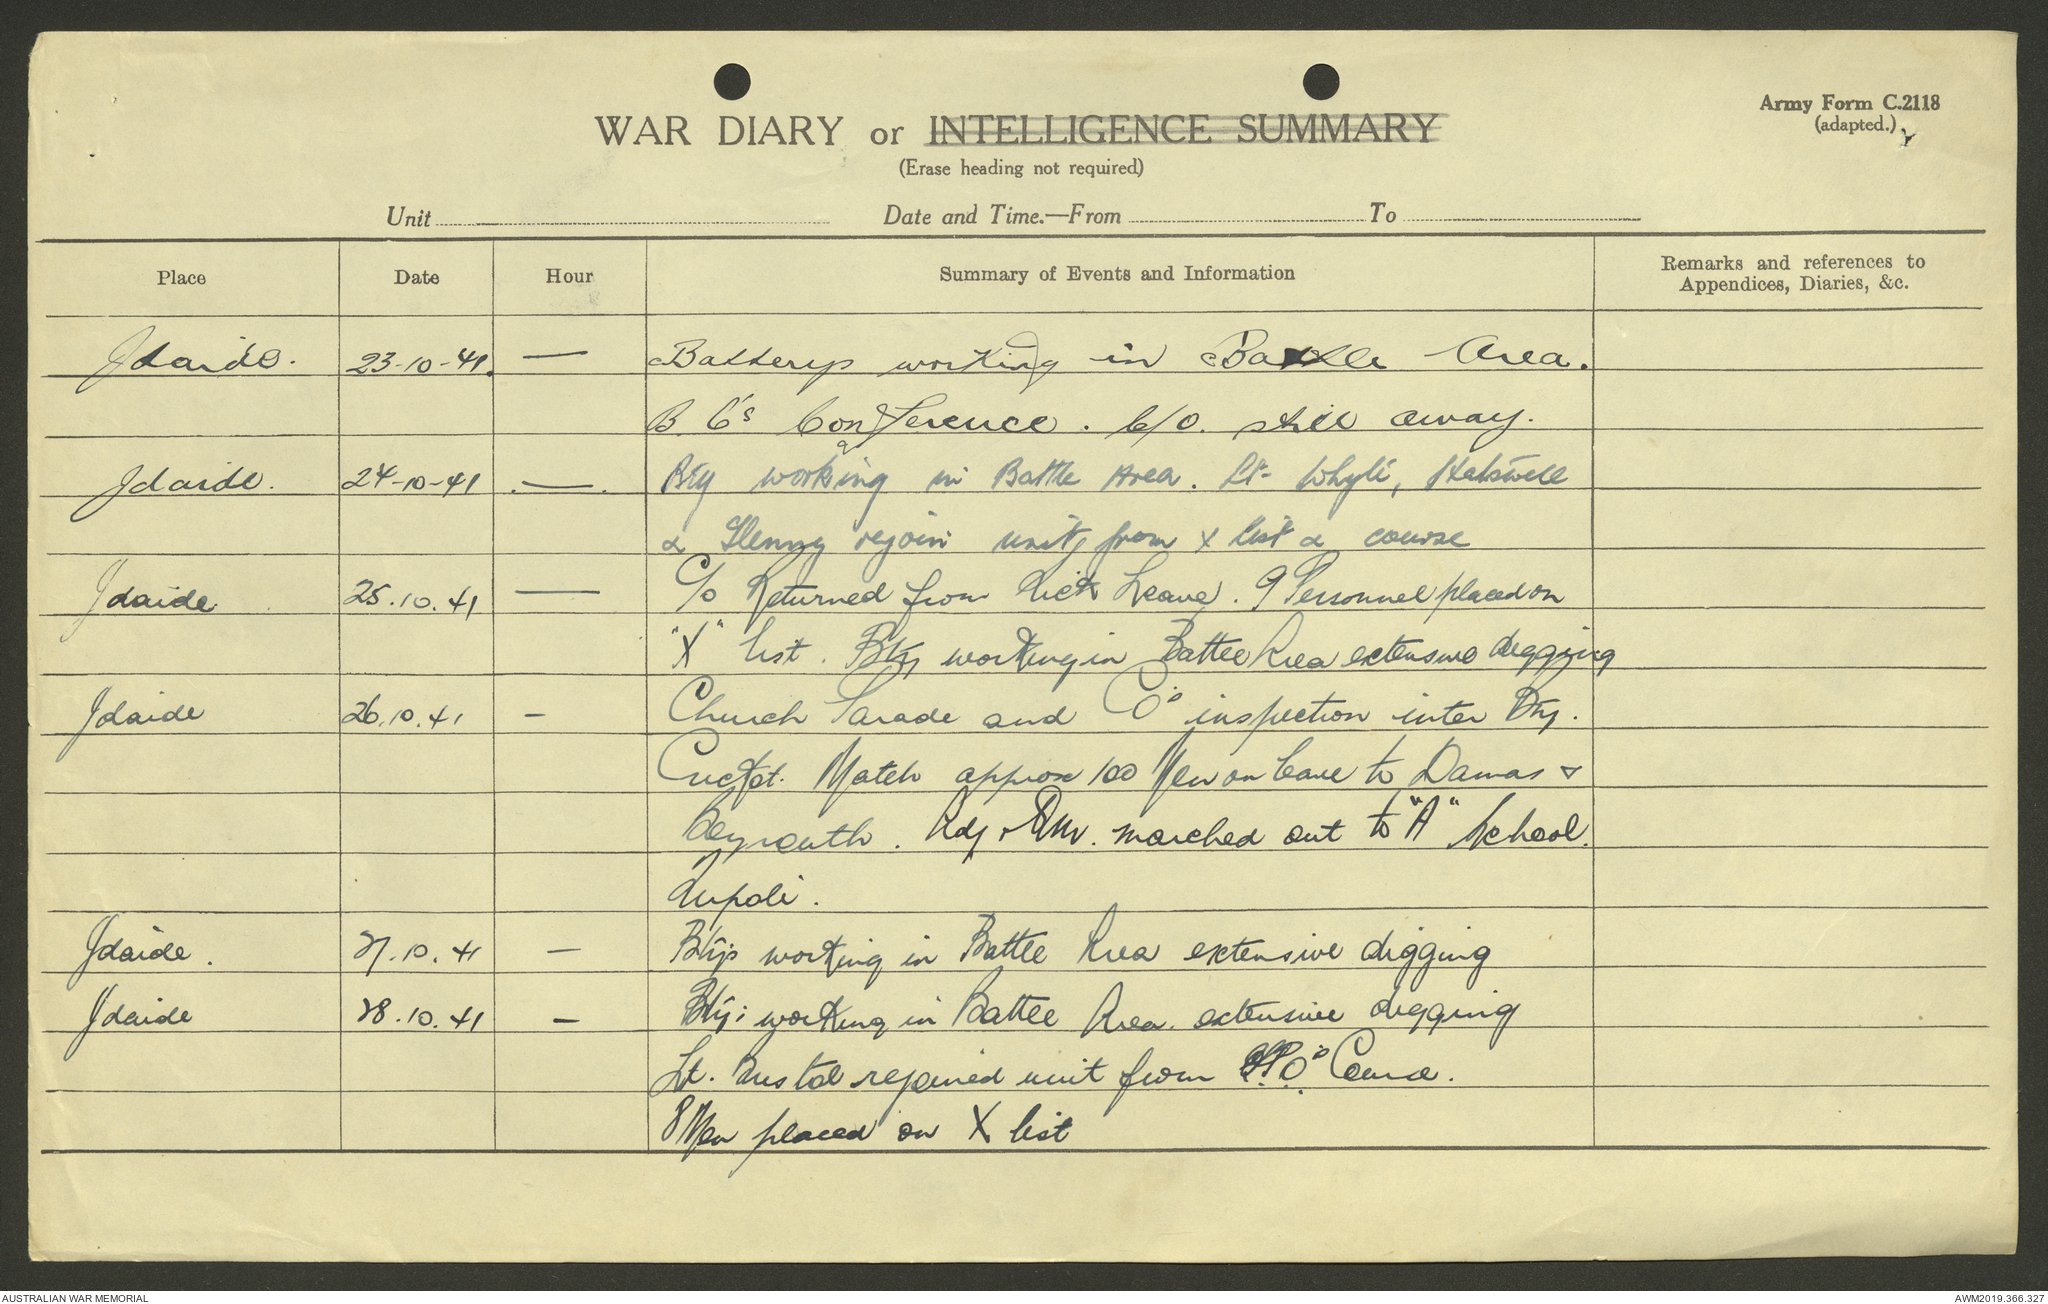 Army Form C.2118
(adapted.)
WAR DIARY or INTELLIGENCE SUMMARY
(Erase heading not required)
Unit Date and Time.—From To
Place Date Hour Summary of Events and Information Remarks and references to
Appendices, Diaries, &c.
Jdaide. 23-10-41. — Batterys working in Battle Area.
B.C's Conference. C/O. still away.
Jdaide. 24-10-41 — Bty working in Battle Area. Lt- Whyte, Halswell
& rejoin unit from X list & course
Jdaide 25.10.41 — C/O Returned from Sick Leave. 9 Personnel placed on
"X" list. Bty working in Battle Area extensive digging
Jdaide 26.10.41 - Church Parade and CO's inspection inter Bty.
Cricket. Match approx 100 Men on leave to Damas &
Beyrouth. Adj & marched out to "A" School.
Tripoli.
Jdaide. 27.10.41 — Btys working in Battle Area extensive digging
Jdaide 28.10.41 — Btys: working in Battle Area. extensive digging
Lt. rejoined unit from Course.
8 Men placed on X list
AUSTRALIAN WAR MEMORIAL AWM2019.366.327